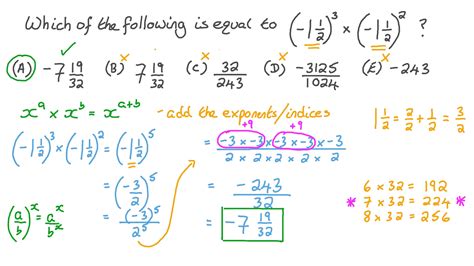 Which of the following is equal to (-1 1/2)^3 × (-1 1/2)^2 ?
(A) -7 19/32 (B) 7 19/32 (C) 32/243 (D) -3125/1024 (E) -243
x^a × x^b = x^(a+b) - add the exponents/indices
1 1/2 = 2/2 + 1/2 = 3/2
(-1 1/2)^3 × (-1 1/2)^2 = (-1 1/2)^5
= (-3/2)^5
(a/b)^x = a^x/b^x
= (-3)^5/2^5
+9 +9
= -3 × -3 × -3 × -3 × -3 / 2 × 2 × 2 × 2 × 2
= -243/32
= -7 19/32
6 × 32 = 192
* 7 × 32 = 224 *
8 × 32 = 256